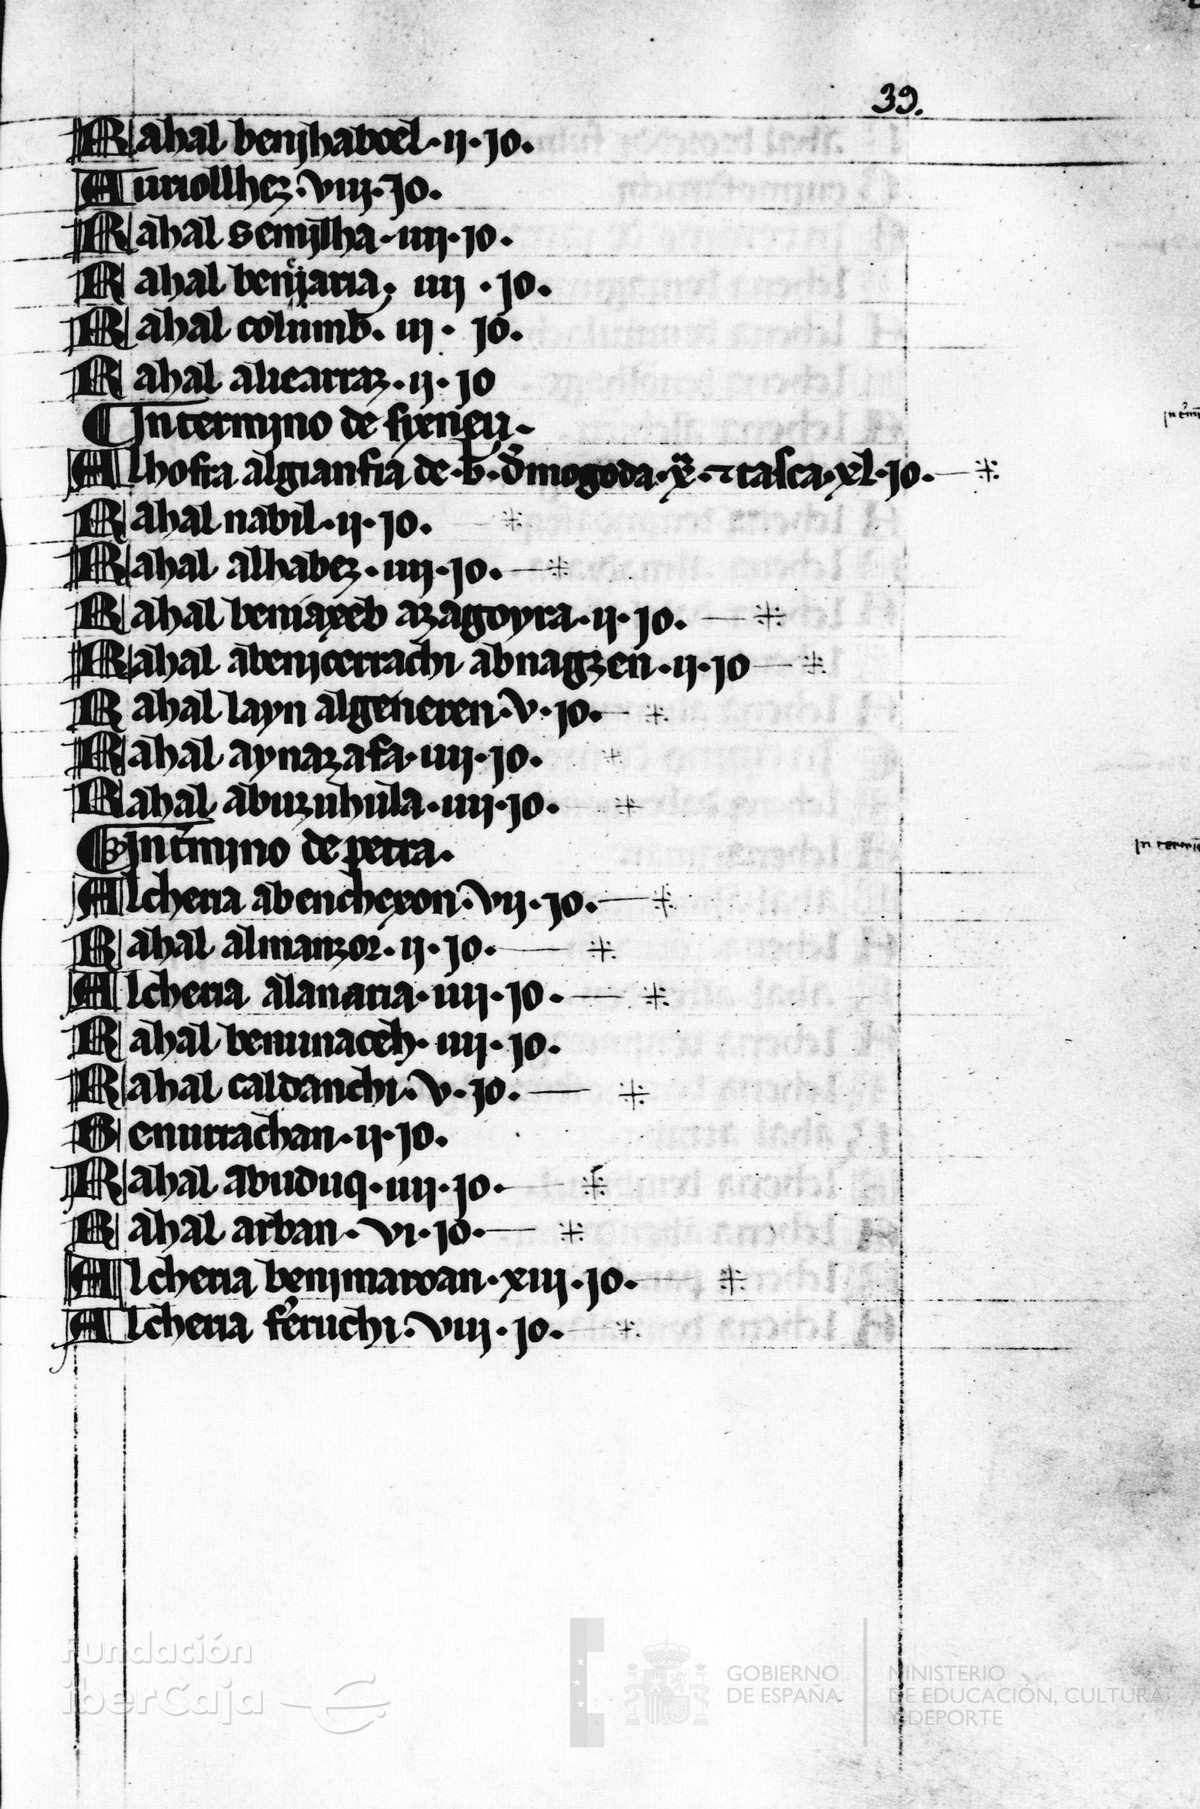 39.
Rahal benjhabdel·ij·jo.
Auriollhez·viij·jo.
Rahal semjlha·iiij·jo.
Rahal benjaria· iiij ·jo.
Rahal columb̄. iij· jo.
Rahal alicarraz·ij·jo
In termjno de sixneu·
Alhofra algianfia de·b̄· d̄ mogoda·x̄·⁊ tasca·xl·jo.
Rahal nabil·ij·jo.
Rahal alhabez·iiij·jo.
Rahal beniaxeb azagoyra·ij·jo.
Rahal abenicerrachi abnagzen·ij·jo
Rahal layn algeneren·v·jo.
Rahal aynazafa·iiij·jo.
Rahal abuzuhula·iiij·jo.
In t̄mjno de petra.
Alcheria abenchexon·vij·jo.
Rahal almanzor·ij·jo.
Alcheria alanaria·iiij·jo.
Rahal benunaceh·iiij·jo.
Rahal caldanchi·v·jo.
Benurrachan·ij·jo.
Rahal abuduq·iiij·jo.
Rahal arban·vi·jo.
Alcheria benimaroan·xiij·jo.
Alcheria f̄eruchi·viij·jo.
Fundación
iberCaja
GOBIERNO
DE ESPAÑA
MINISTERIO
DE EDUCACIÓN, CULTURA
Y DEPORTE